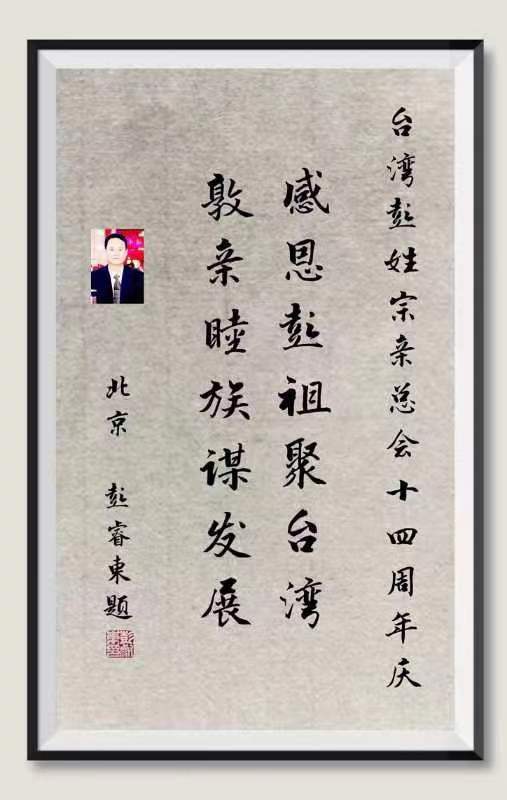 台湾彭姓宗亲总会十四周年庆
感恩彭祖聚台湾
敦亲睦族谋发展
北京 彭睿东题